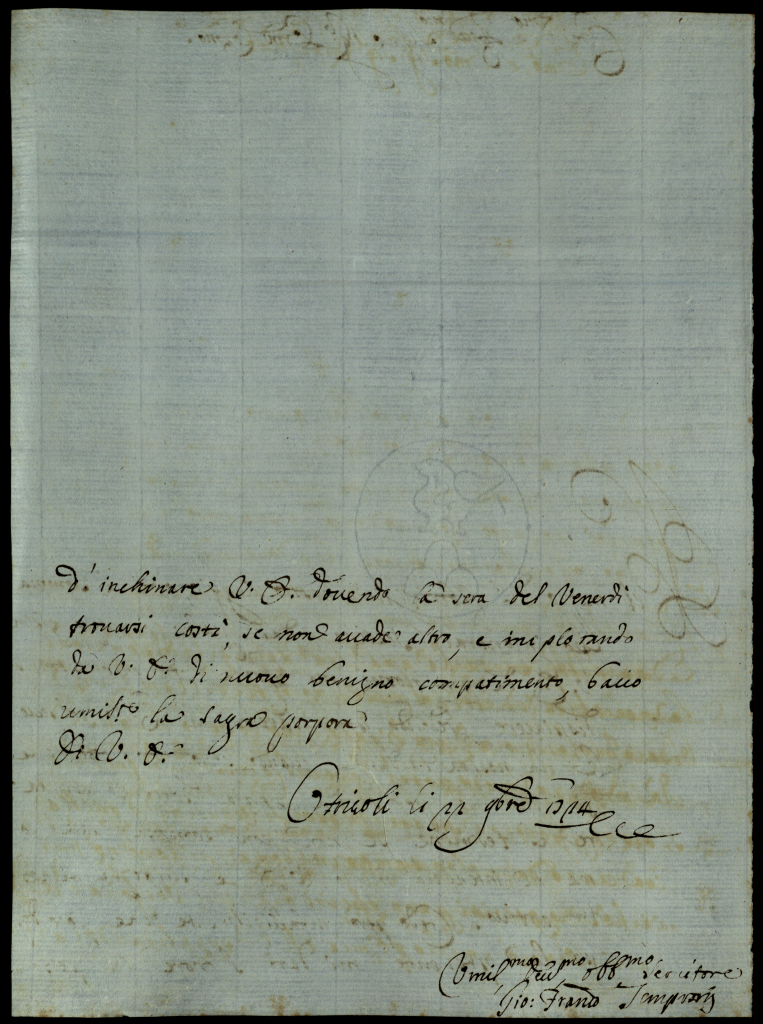 d'inchinare V. E. dovendo la sera del Venerdì
trovarsi costì, se non accade altro, e implorando
da V. E. di nuovo benigno compatimento, bacio
umilte la sagra porpora
Di V. E.
Otricoli li 9bre 1714
Umilmo devmo obbmo servitore
Gio: Franco